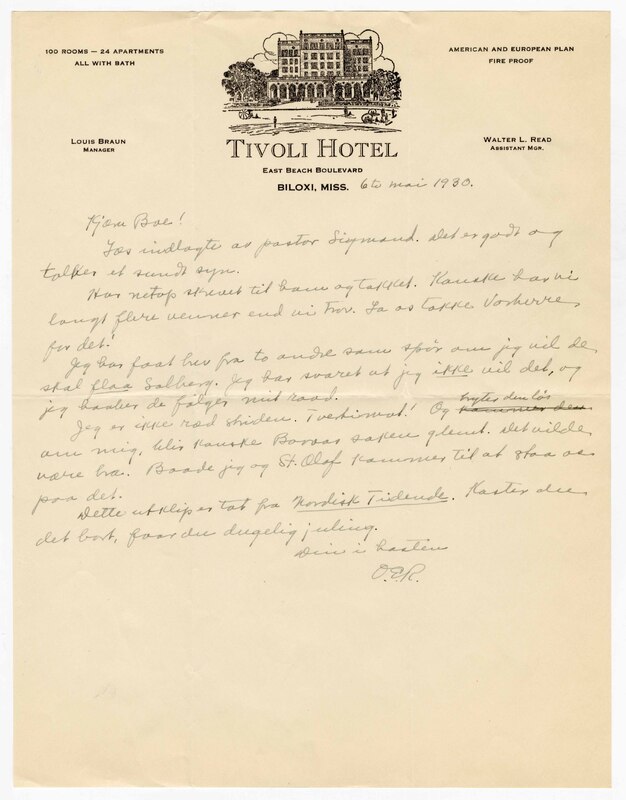 100 ROOMS — 24 APARTMENTS
ALL WITH BATH
AMERICAN AND EUROPEAN PLAN
FIRE PROOF
LOUIS BRAUN
MANAGER
WALTER L. READ
ASSISTANT MGR.
TIVOLI HOTEL
EAST BEACH BOULEVARD
BILOXI, MISS. 6te mai 1930.
Kjære Boe!
Læs indlagte av pastor Sigmond. Det er godt og
tolker et sundt syn.
Har netop skrevet til ham og takket. Kanske har vi
langt flere venner end vi tror. La os takke Vorherre
for det!
Jeg har faat brev fra to andre som spør om jeg vil de
skal flaa Solberg. Jeg har svaret at jeg ikke vil det, og
jeg haaber de følger mit raad.
Jeg er ikke ræd striden. Tvertimot! Og bryter den løs
kommer den
om mig, blir kanske Boraas saken glemt. Det vilde
være bra. Baade jeg og St. Olaf kommer til at staa os
paa det.
Dette utklip er tat fra Nordisk Tidende. Kaster du
det bort, faar du dugelig juling.
Din i hasten
O.E.R.